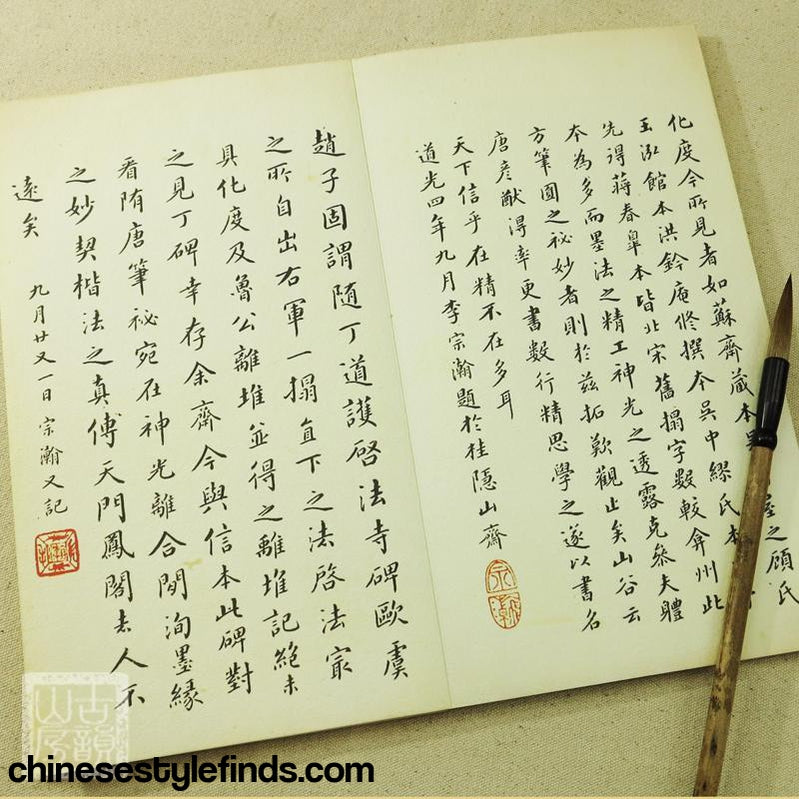 屋之顧氏
化度今所見者如蘇齋藏本
玉泓館本洪鈐庵修撰本吳中繆氏本
先得蔣春皐本皆北宋舊搨字數較弇州此
本為多而墨法之精工神光之透露克叅夫體
方筆圓之祕妙者則於兹拓歎觀止矣山谷云
唐彦猷得率更書數行精思學之遂以書名
天下信乎在精不在多耳
道光四年九月李宗瀚題於桂隱山齋
趙子固謂隨丁道護啓法寺碑歐虞
之所自出右軍一搨直下之法啓法㝡
具化度及魯公離堆並得之離堆記絕未
之見丁碑幸存余齋今與信本此碑對
看隋唐筆祕宛在神光離合間洵墨緣
之妙契楷法之真傳天門鳳閣去人不
遠矣 九月廿又一日宗瀚又記
古韻山房
chinesestylefinds.com